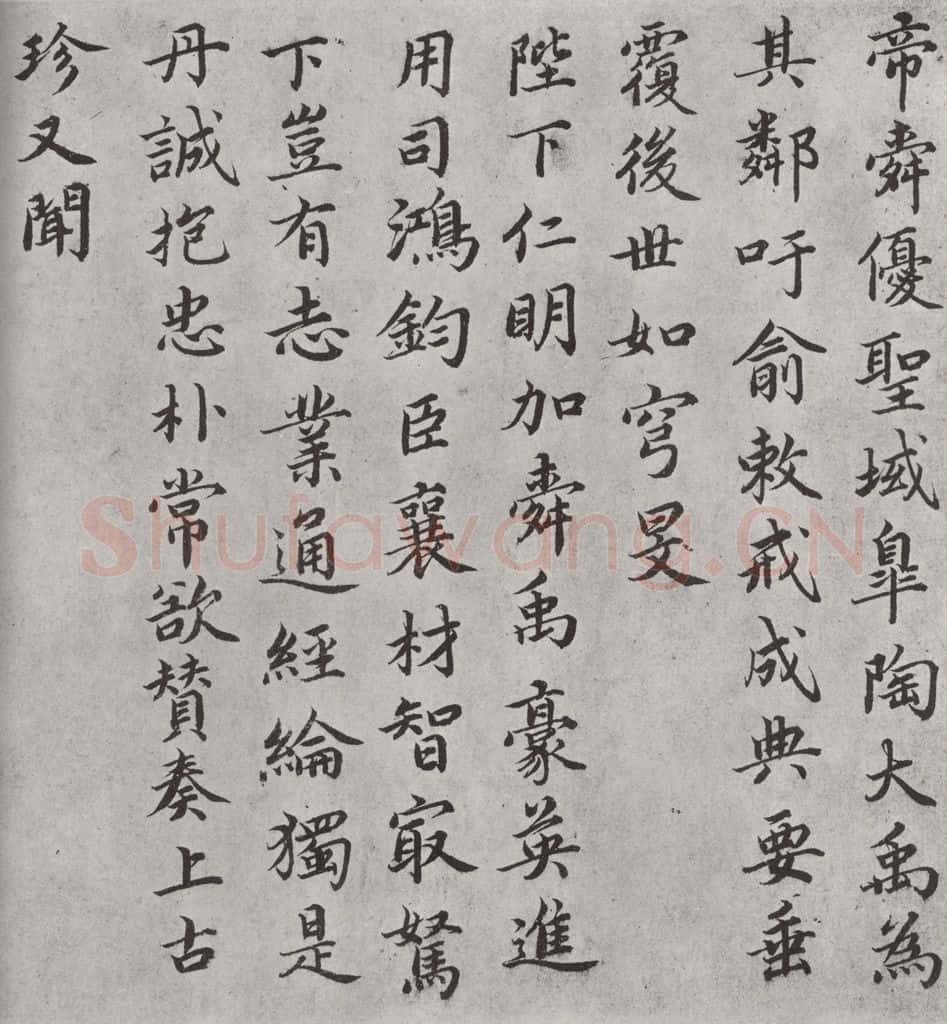 帝舜優聖域皐陶大禹為
其鄰吁俞敕戒成典要垂
覆後世如穹旻
陛下仁明加舜禹豪英進
用司鴻鈞臣襄材智最駑
下豈有志業通經綸獨是
丹誠抱忠朴常欲贊奏上古
珍又聞
Shufawang.CN